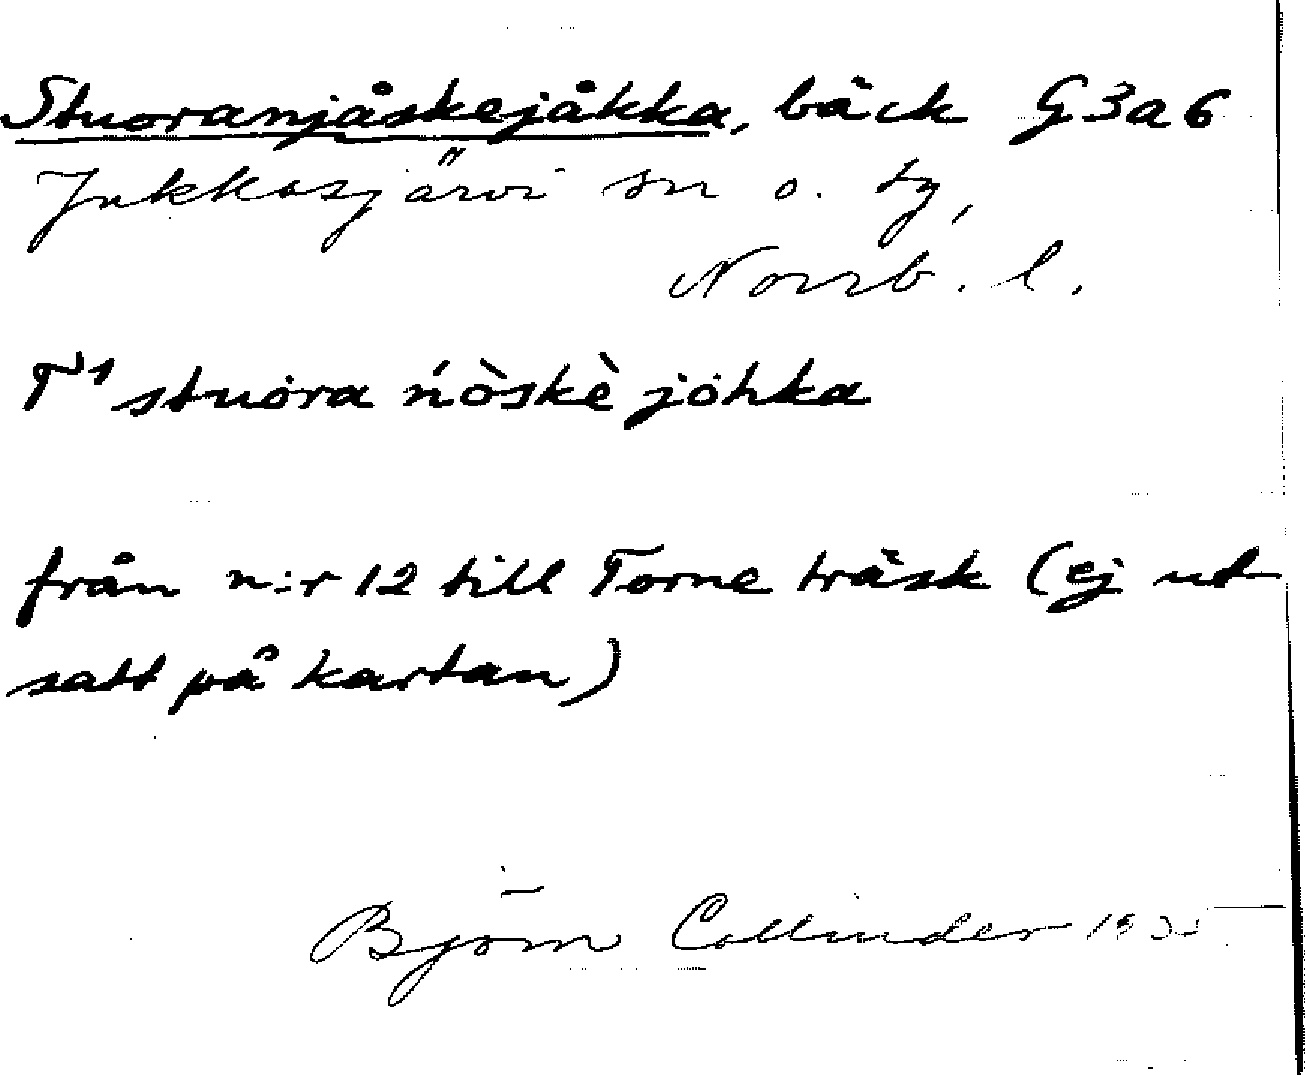 Stuoranjåskejåkka, bäck G3a6
Jukkasjärvi sn o. tg,
Norrb. l.
T¹ stuora ńòskè johka
från n:r 12 till Torne träsk (ej ut
satt på kartan)
Björn Collinder 1935